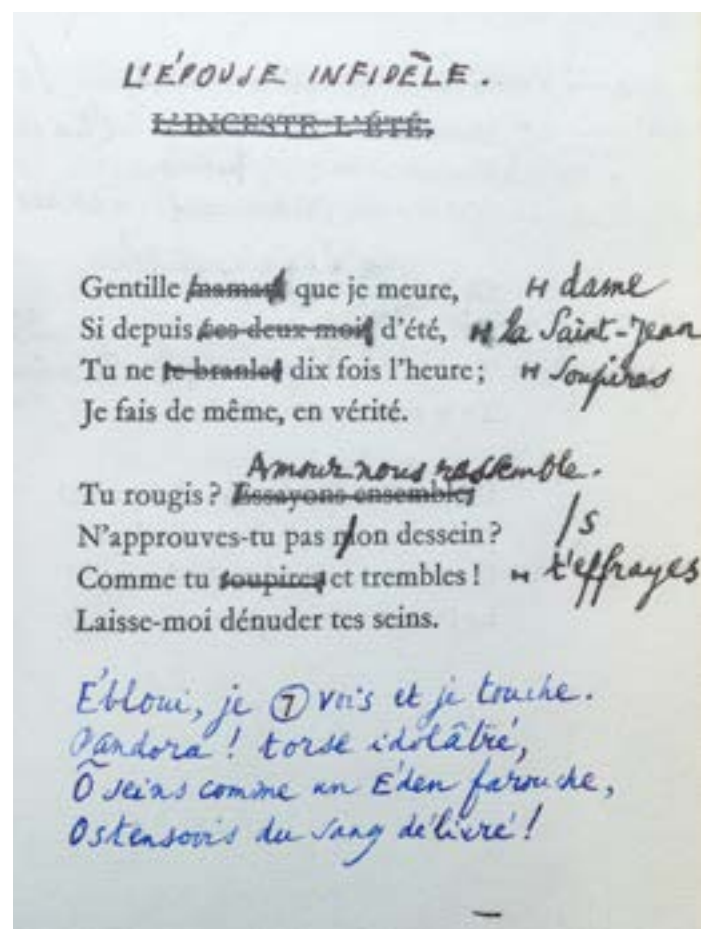 L'ÉPOUSE INFIDÈLE.
L'INCESTE L'ÉTÉ.
Gentille maman que je meure, H dame
Si depuis ces deux mois d'été, H la Saint-Jean
Tu ne te branles dix fois l'heure; H soupires
Je fais de même, en vérité.
Amour nous ressemble.
Tu rougis ? Essayons ensemble,
N'approuves-tu pas mon dessein ? /s
Comme tu soupires et trembles ! H t'effrayes
Laisse-moi dénuder tes seins.
Ébloui, je 7 vois et je touche.
Pandora ! torse idolâtré,
Ô seins comme un Éden farouche,
Ostensoirs du sang délivré !